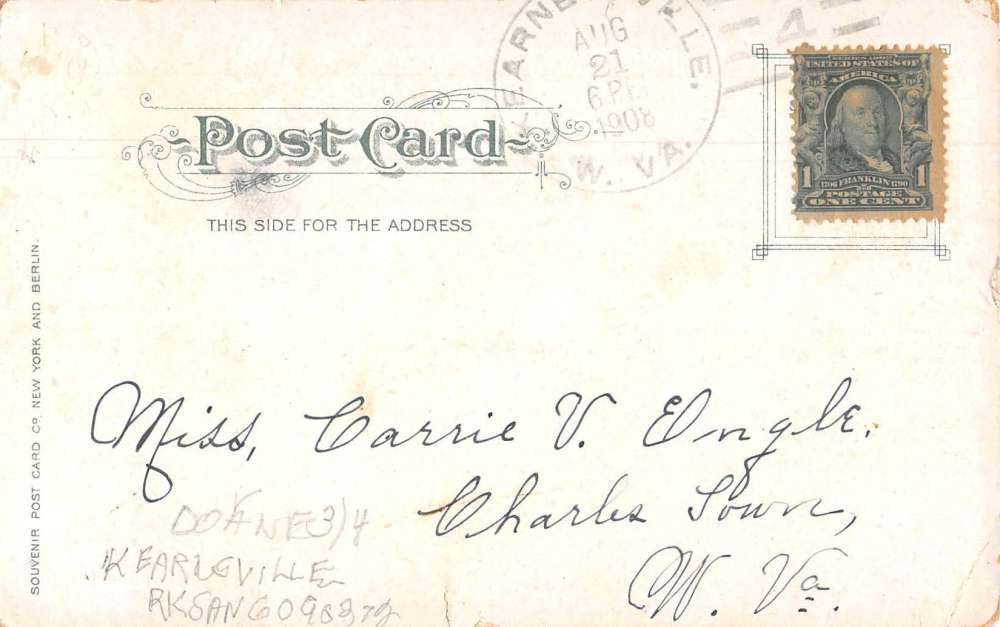 KEARNEYSVILLE.
AUG
21
6 PM
1908
W. VA.
4
SERIES 1902
UNITED STATES OF
AMERICA
1 1706 FRANKLIN 1790 1
POSTAGE
ONE CENT
Post Card
THIS SIDE FOR THE ADDRESS
SOUVENIR POST CARD CO. NEW YORK AND BERLIN.
Miss, Carrie V. Engle.
Charles Town,
W. Va.
DOANE 3/4
KEARNEVILLE